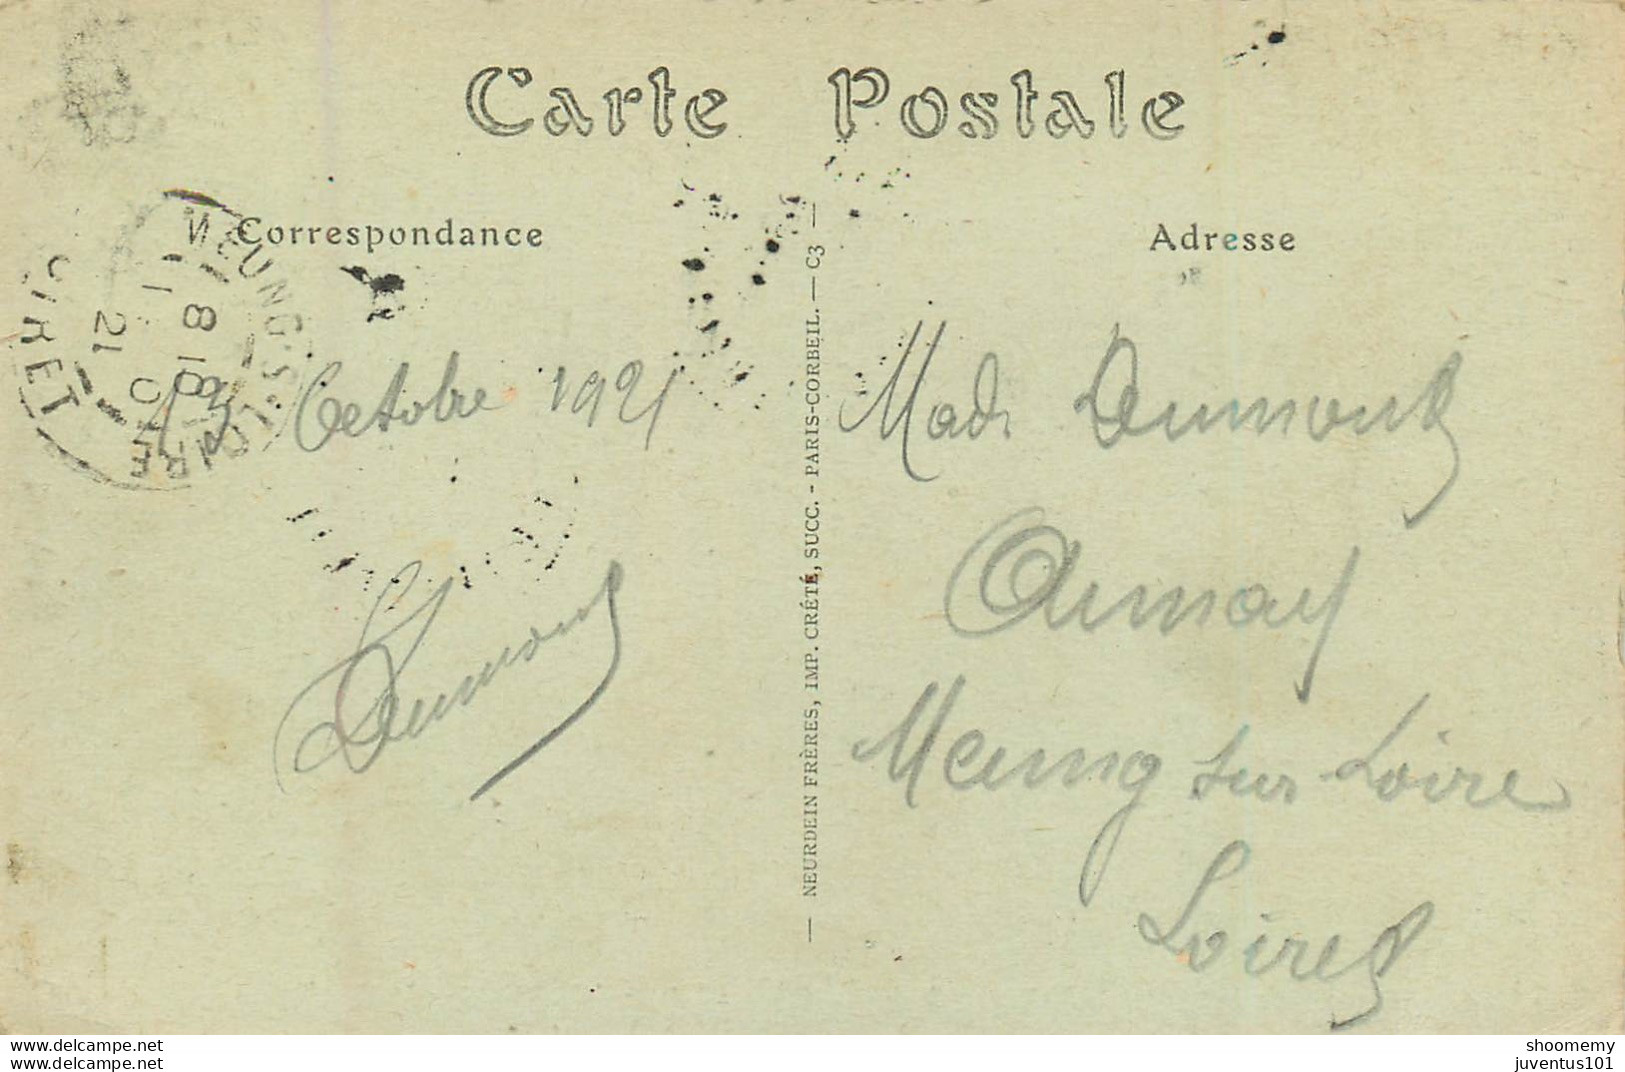 Carte Postale
Correspondance
Adresse
MEUNG-S-LOIRE
LOIRET
18 10
21
Octobre 1921
Dumont
NEURDEIN FRÈRES, IMP. CRÉTÉ, SUCC. - PARIS-CORBEIL. — C3
Made Dumont
Aunay
Meung sur Loire
Loiret
www.delcampe.net
juventus101
shoomemy
juventus101